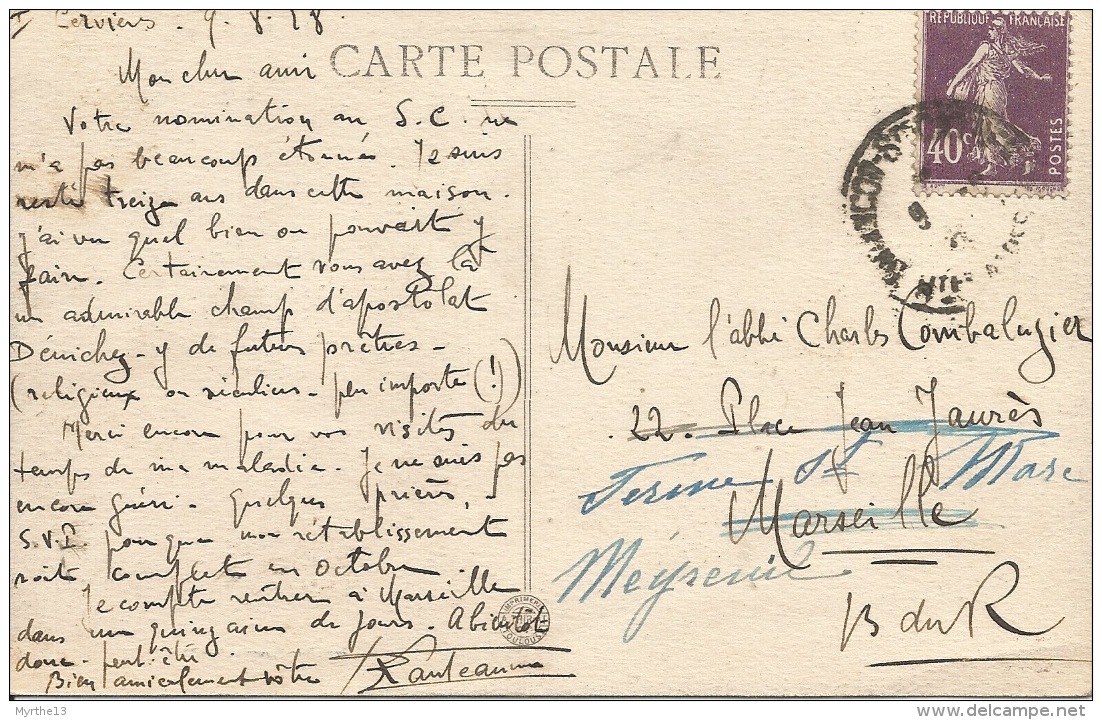 Cerviers - 9.8.28
CARTE POSTALE
Mon cher ami
Votre nomination au S.C. ne
m'a pas beaucoup étonné. Je suis
resté treize ans dans cette maison.
J'ai vu quel bien on pouvait y
faire. Certainement vous avez là
un admirable champ d'apostolat
Dénichez-y de futurs prêtres -
(religieux ou séculiers - peu importe (!)
Merci encore pour vos visites du
temps de ma maladie. Je ne suis pas
encore guéri. Quelques prières,
S.V.P. pour que mon rétablissement
soit complet en octobre.
Je compte rentrer à Marseille
dans une quinzaine de jours. A bientôt
donc - peut-être
Bien amicalement vôtre
REPUBLIQUE FRANÇAISE
40c
POSTES
BRIANCON
Monsieur l'abbé Charles Combaluzier
22. Place Jean Jaurès
Ferme St Marc
Marseille
Meyreuil
B du R
IMPRIMERIE
TOULOUSE
Myrthe13
delcampe.net